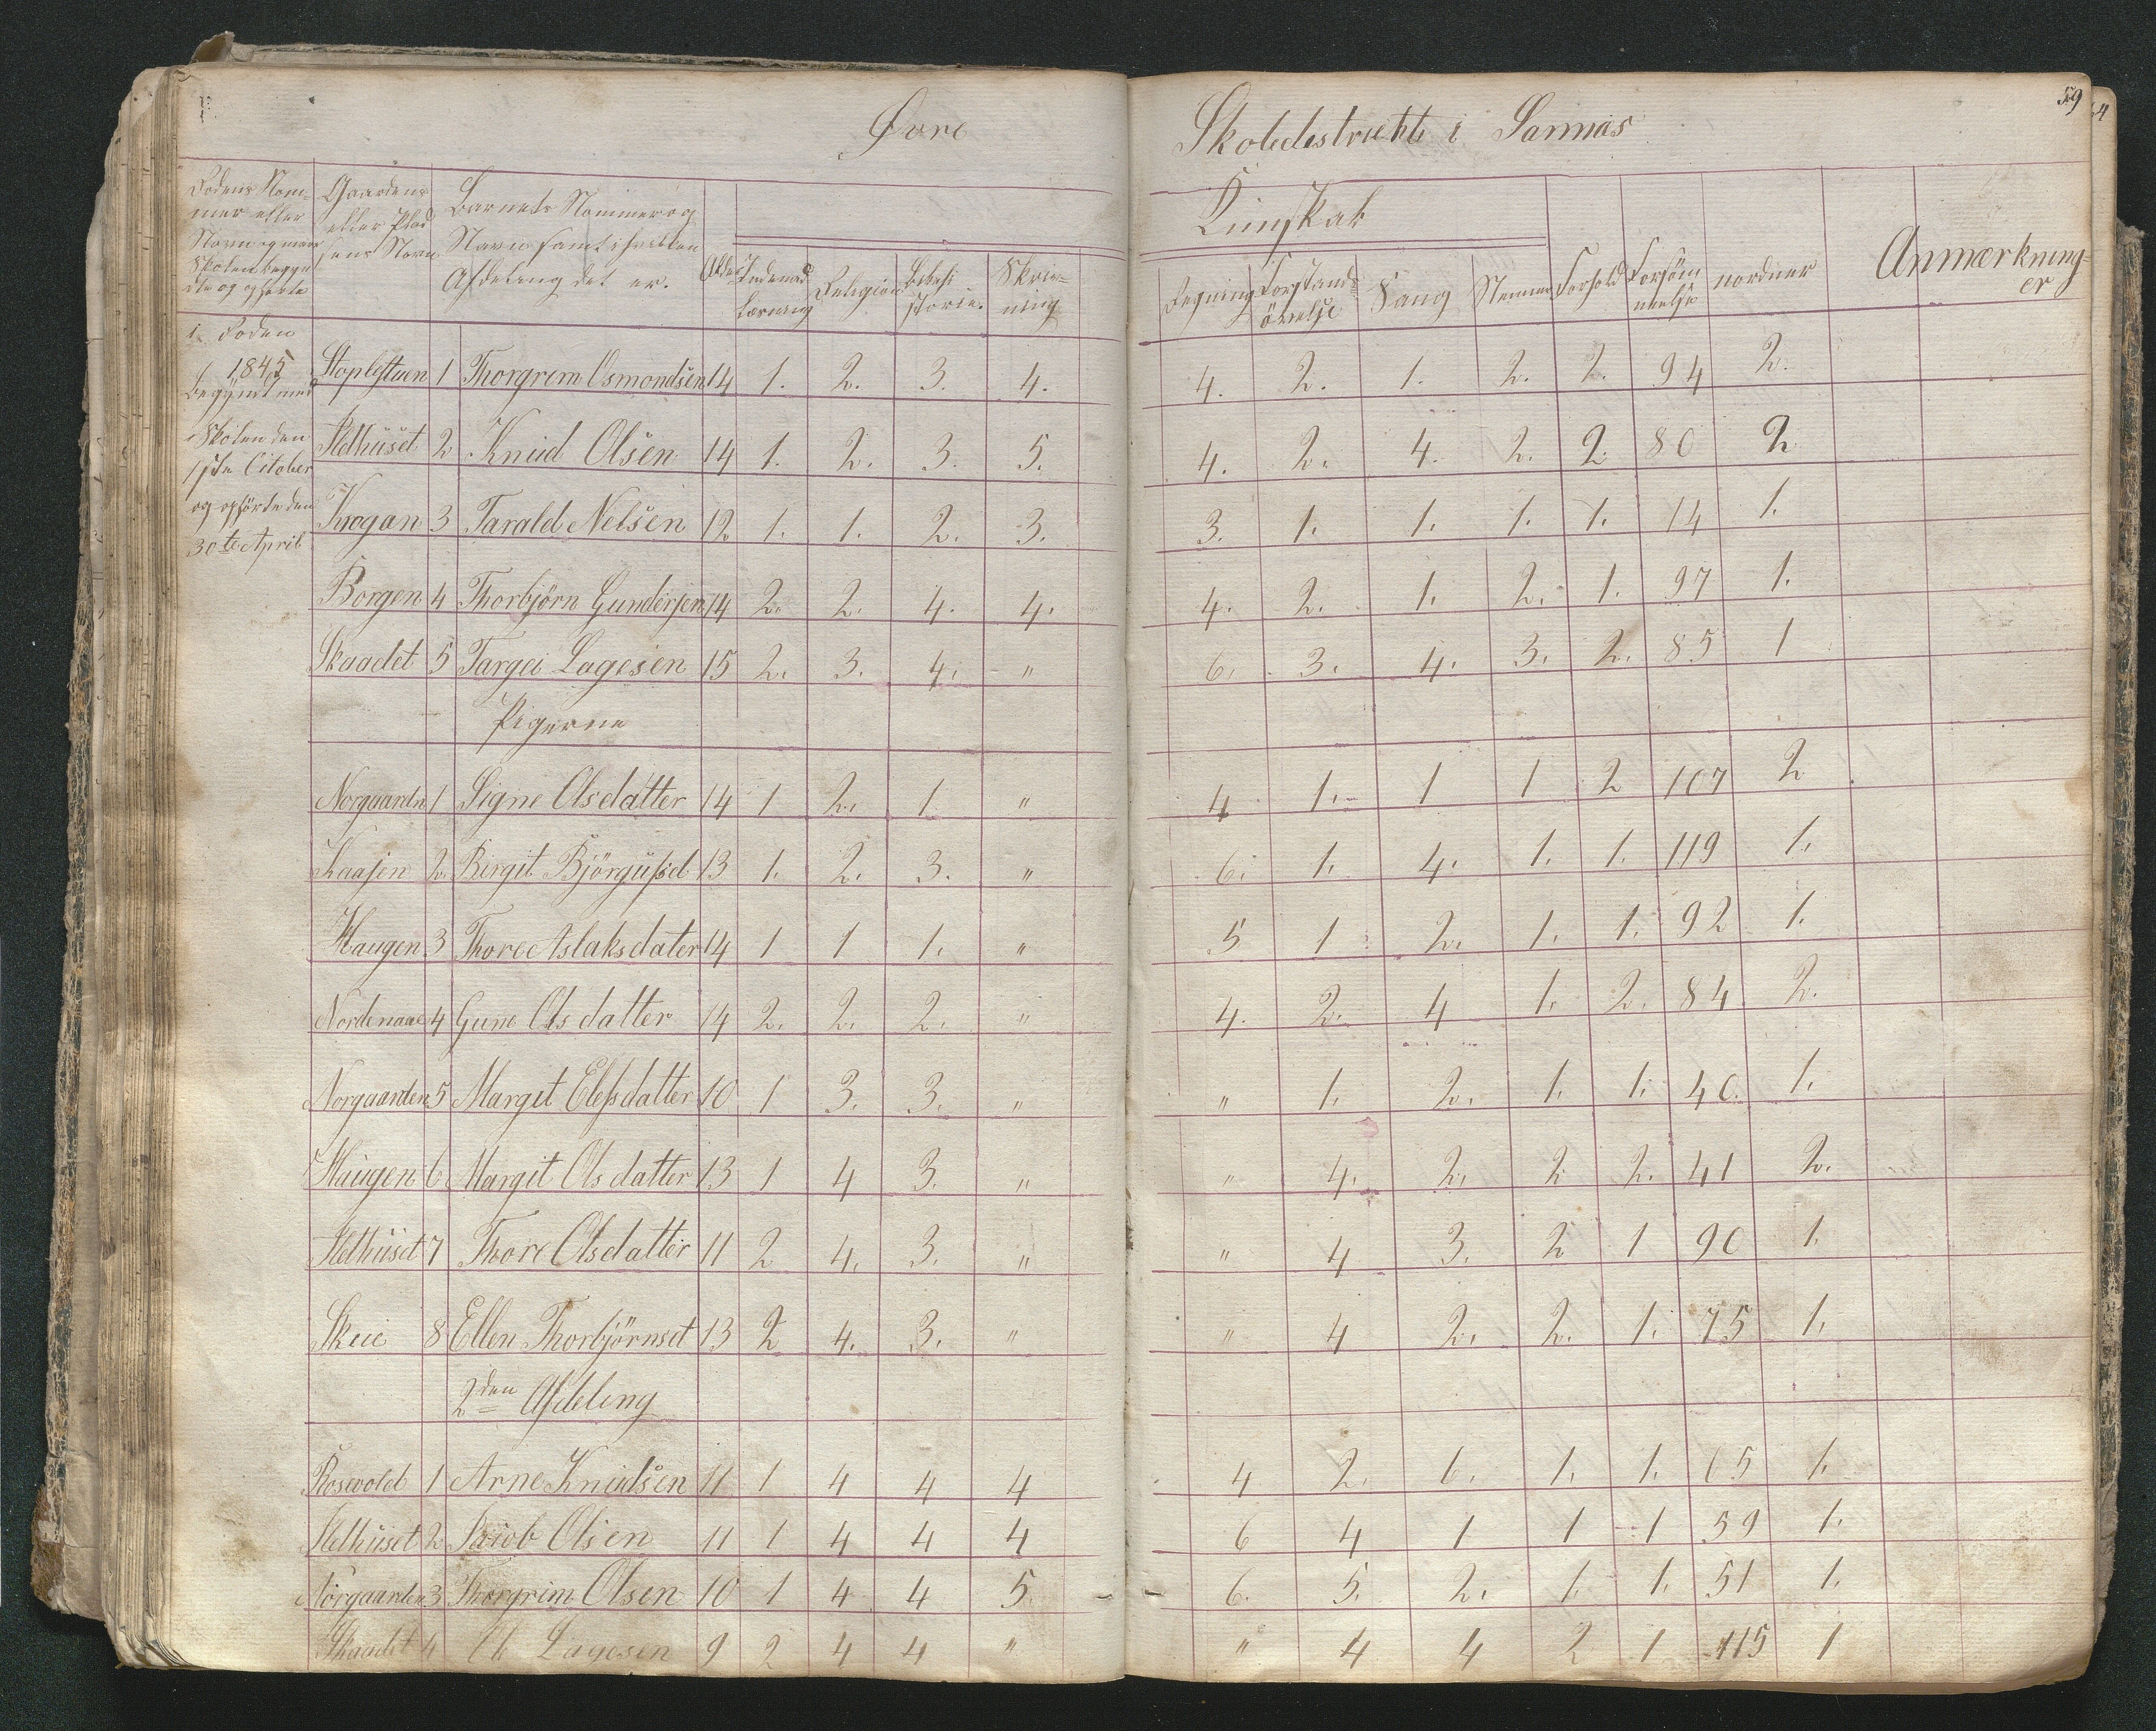 Øvre Skoledestrickt i Sannas
59
Rodens Nom-
mer eller
Navn og naar
Skolen begyn
dte og ophørte
Gaardens
eller Plad
sens Navn
Barnets Nommer og
Navn samt i hvilken
Afdeling det er.
Alder
Kunskab
Indenad
Læsning
Religion
Bibelhi
storie.
Skriv-
ning
Regning
Forstands
övelse
Sang
Nemme
Forhold
Forsöm
melse
Anmærkning-
er
1. Roden
1845
begyndt med
Skolen den
1ste October
og ophörte den
30te April
Stoplestuen 1 Thorgrim Osmondsen 14 1. 2. 3. 4. 4. 2. 1. 2. 2. 94 2.
Klethuset 2 Knud Olsen 14 1. 2. 3. 5. 4. 2. 4. 2. 2. 80 2
Krogan 3 Tarald Nelsen 12 1. 1. 2. 3. 3. 1. 1. 1. 1. 14 1.
Borgen 4 Thorbjörn Gundersen 14 2. 2. 4. 4. 4. 2. 1. 2. 1. 97 1.
Skaadet 5 Targei Lagesen 15 2. 3. 4. " 6. 3. 4. 3. 2. 85 1
Pigerne
Norgaarden 1 Signe Olsdatter 14 1 2. 1. " 4 1. 1 1 2 107 2
Kaasen 2 Birgit Björgulsd 13 1. 2. 3. " 6. 1. 4. 1. 1. 119 1.
Haugen 3 Thore Aslaksdater 14 1 1 1. " 5 1 2. 1. 1. 92 1.
Nordenaae 4 Gune Olsdatter 14 2. 2. 2. " 4. 2. 4 1. 2. 84 2.
Norgaarden 5 Margit Elefsdatter 10 1 3. 3. " " 1. 2. 1. 1. 40. 1.
Haugen 6 Margit Olsdatter 13 1 4 3. " " 4. 2. 2 2. 41 2.
Klethuset 7 Thore Olsdatter 11 2 4. 3. " " 4 3. 2 1 90 1.
Skeie 8 Ellen Thorbjörnsd 13 2 4. 3. " " 4 2. 2. 1. 75 1.
2den Afdeling
Rosevold 1 Arne Knudsen 11 1 4 4 4 4 2. 1. 1. 1. 65 1.
Klethuset 2 Jacob Olsen 11 1 4 4 4 6 4 1 1 1 59 1.
Norgaarden 3 Thorgrim Olsen 10 1 4 4 5. 6. 5. 2. 1. 1. 51 1.
Skaadet 4 Ole Lagesen 9 2 4 4 " " 4 4 2 1 115 1